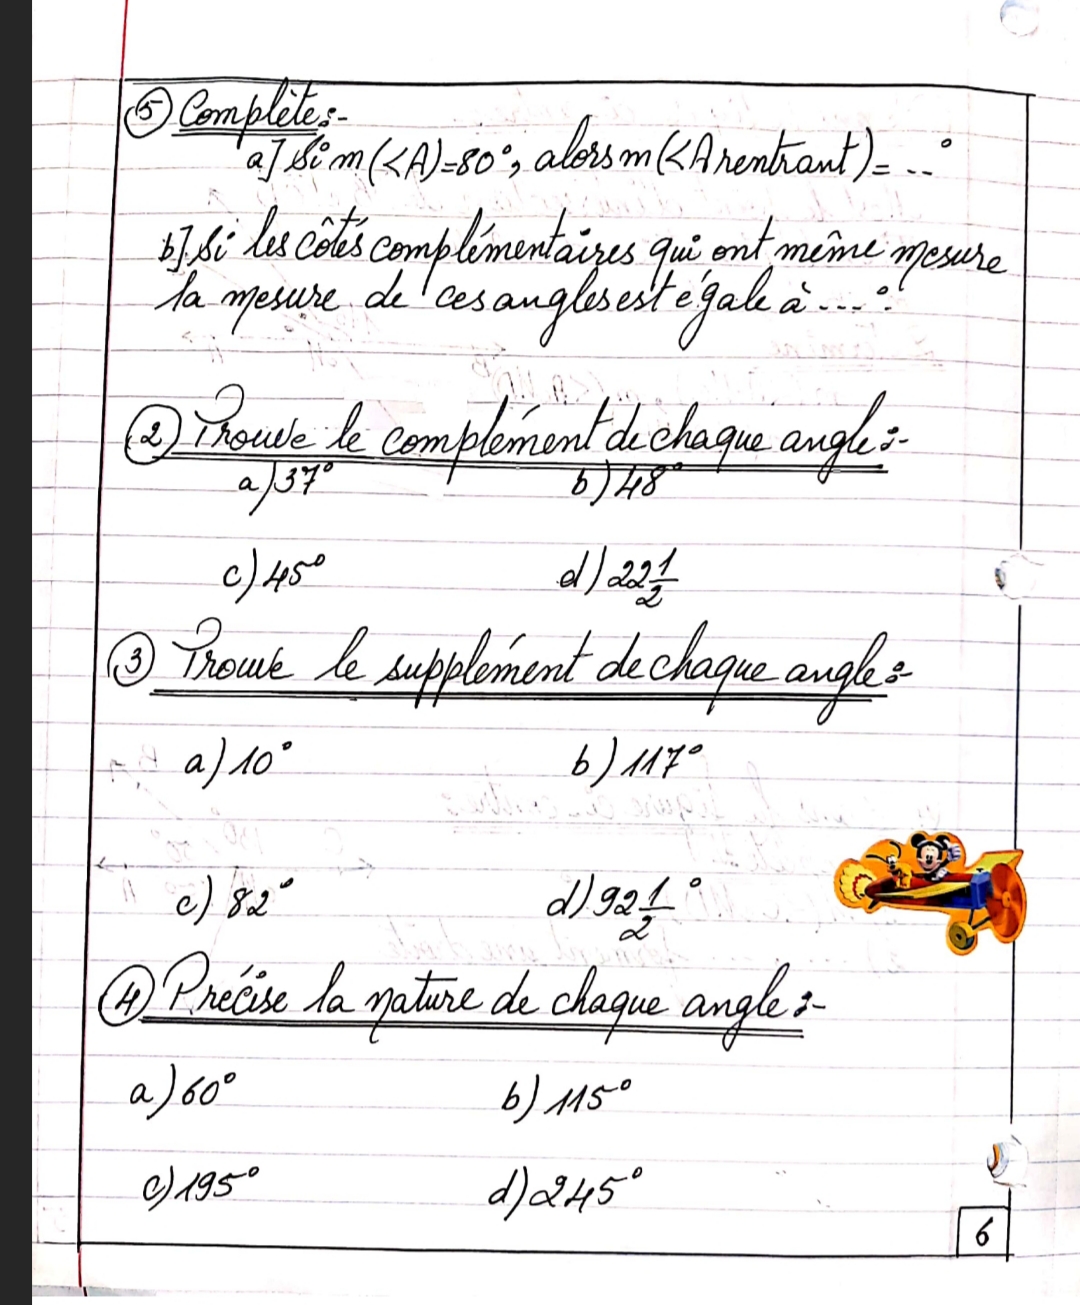 ⑤ Complète:-
a] Si m(<A)=80°, alors m(<A rentrant)= ...°
b] Si les côtés complémentaires qui ont même mesure
la mesure de ces angles est égale à ...°.
② Trouve le complément de chaque angle:-
a) 37° b) 48°
c) 45° d) 22 1/2
③ Trouve le supplément de chaque angle:-
a) 10° b) 117°
c) 82° d) 92 1/2°
④ Précise la nature de chaque angle:-
a) 60° b) 115°
c) 195° d) 245°
6